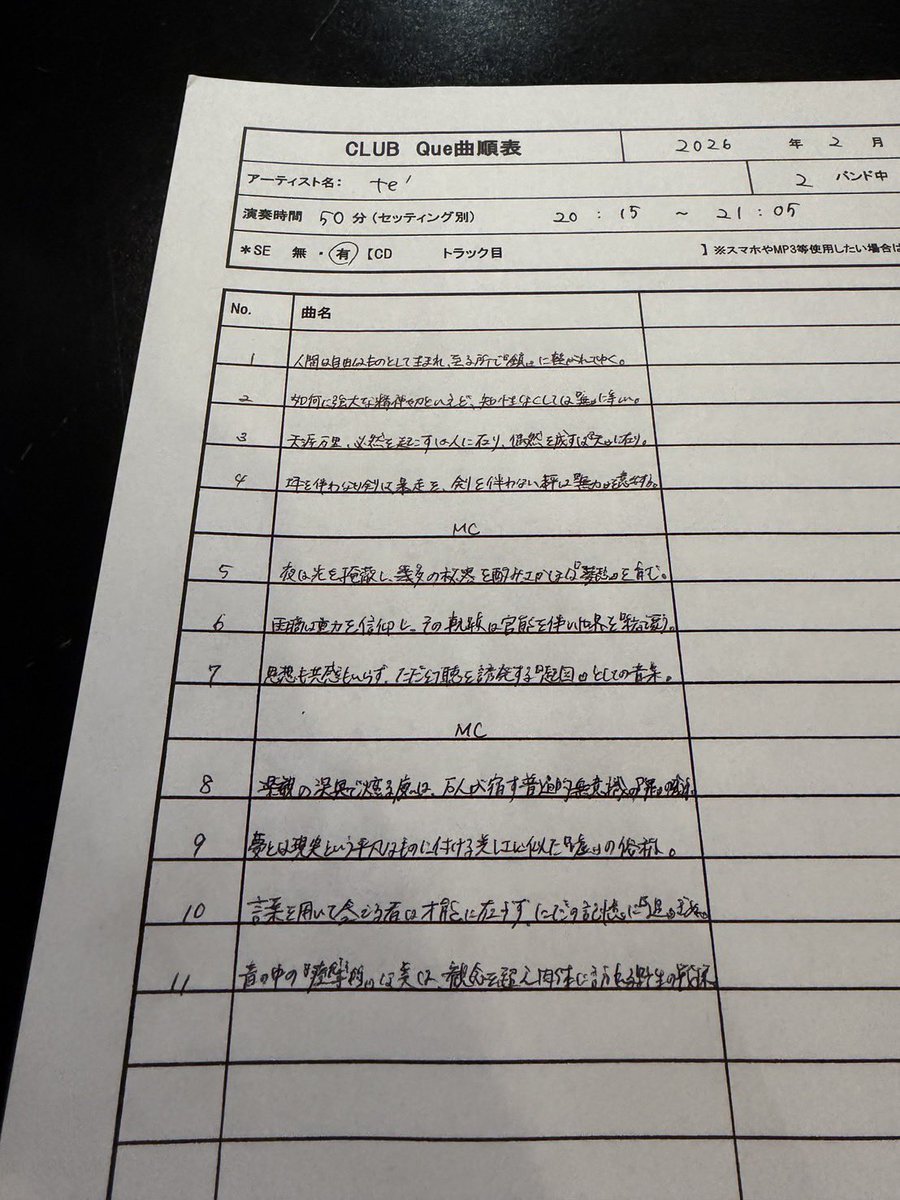 CLUB Que曲順表 2026 年 2 月
アーティスト名: te' 2 バンド中
演奏時間 50 分(セッティング別) 20:15 ~ 21:05
*SE 無・有【CD トラック目 】※スマホやMP3等使用したい場合は
No. 曲名
1 人間は自由なものとして生まれ、至る所で『鎖』に繋がれてゆく。
2 如何に強大な精神力といえど、知性なくしては『無』に等しい。
3 天涯万里、必然を起こすは人に在り、偶然を成すは『天』に在り。
4 秤を伴わない剣は暴走を、剣を伴わない秤は『無力』を意味する。
MC
5 夜は光を掩蔽し、幾多の秘密を酌み上げほぼ『夢』を育む。
6 は重力を信仰し、その軌跡は官能を伴い世界を
7 思想も共感もいらず、ただ幻聴を誘発する『起因』としての音楽。
MC
8 の深奥で燃る は、万人が宿す普遍的無意識の『罪』の
9 夢とは現実という平凡なものに付ける美しさに似た『嘘』の俗称。
10 言葉を用いて奏でる者は才能に在らず、ただの記憶に『過』ぎ
11 音の中の『痙攣的』な美は、観念を超え肉体に訪れる野生の戦慄。